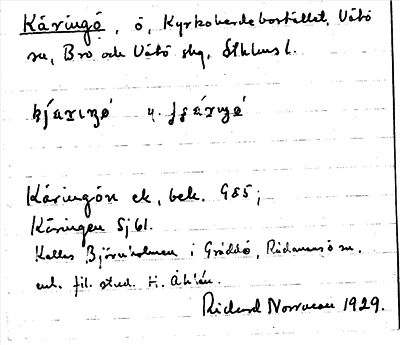 Käringö, ö, Kyrkoherdebostället, Vätö
sn, Bro och Vätö skg, Sthlms l.
Käringön ek, bek. G85;
Käringen Sj 61.
Kallas Björnholmen i Gräddö, Rådmansö sn.
enl. fil. stud. H. Åhlén.
Rickard Norrman 1929.